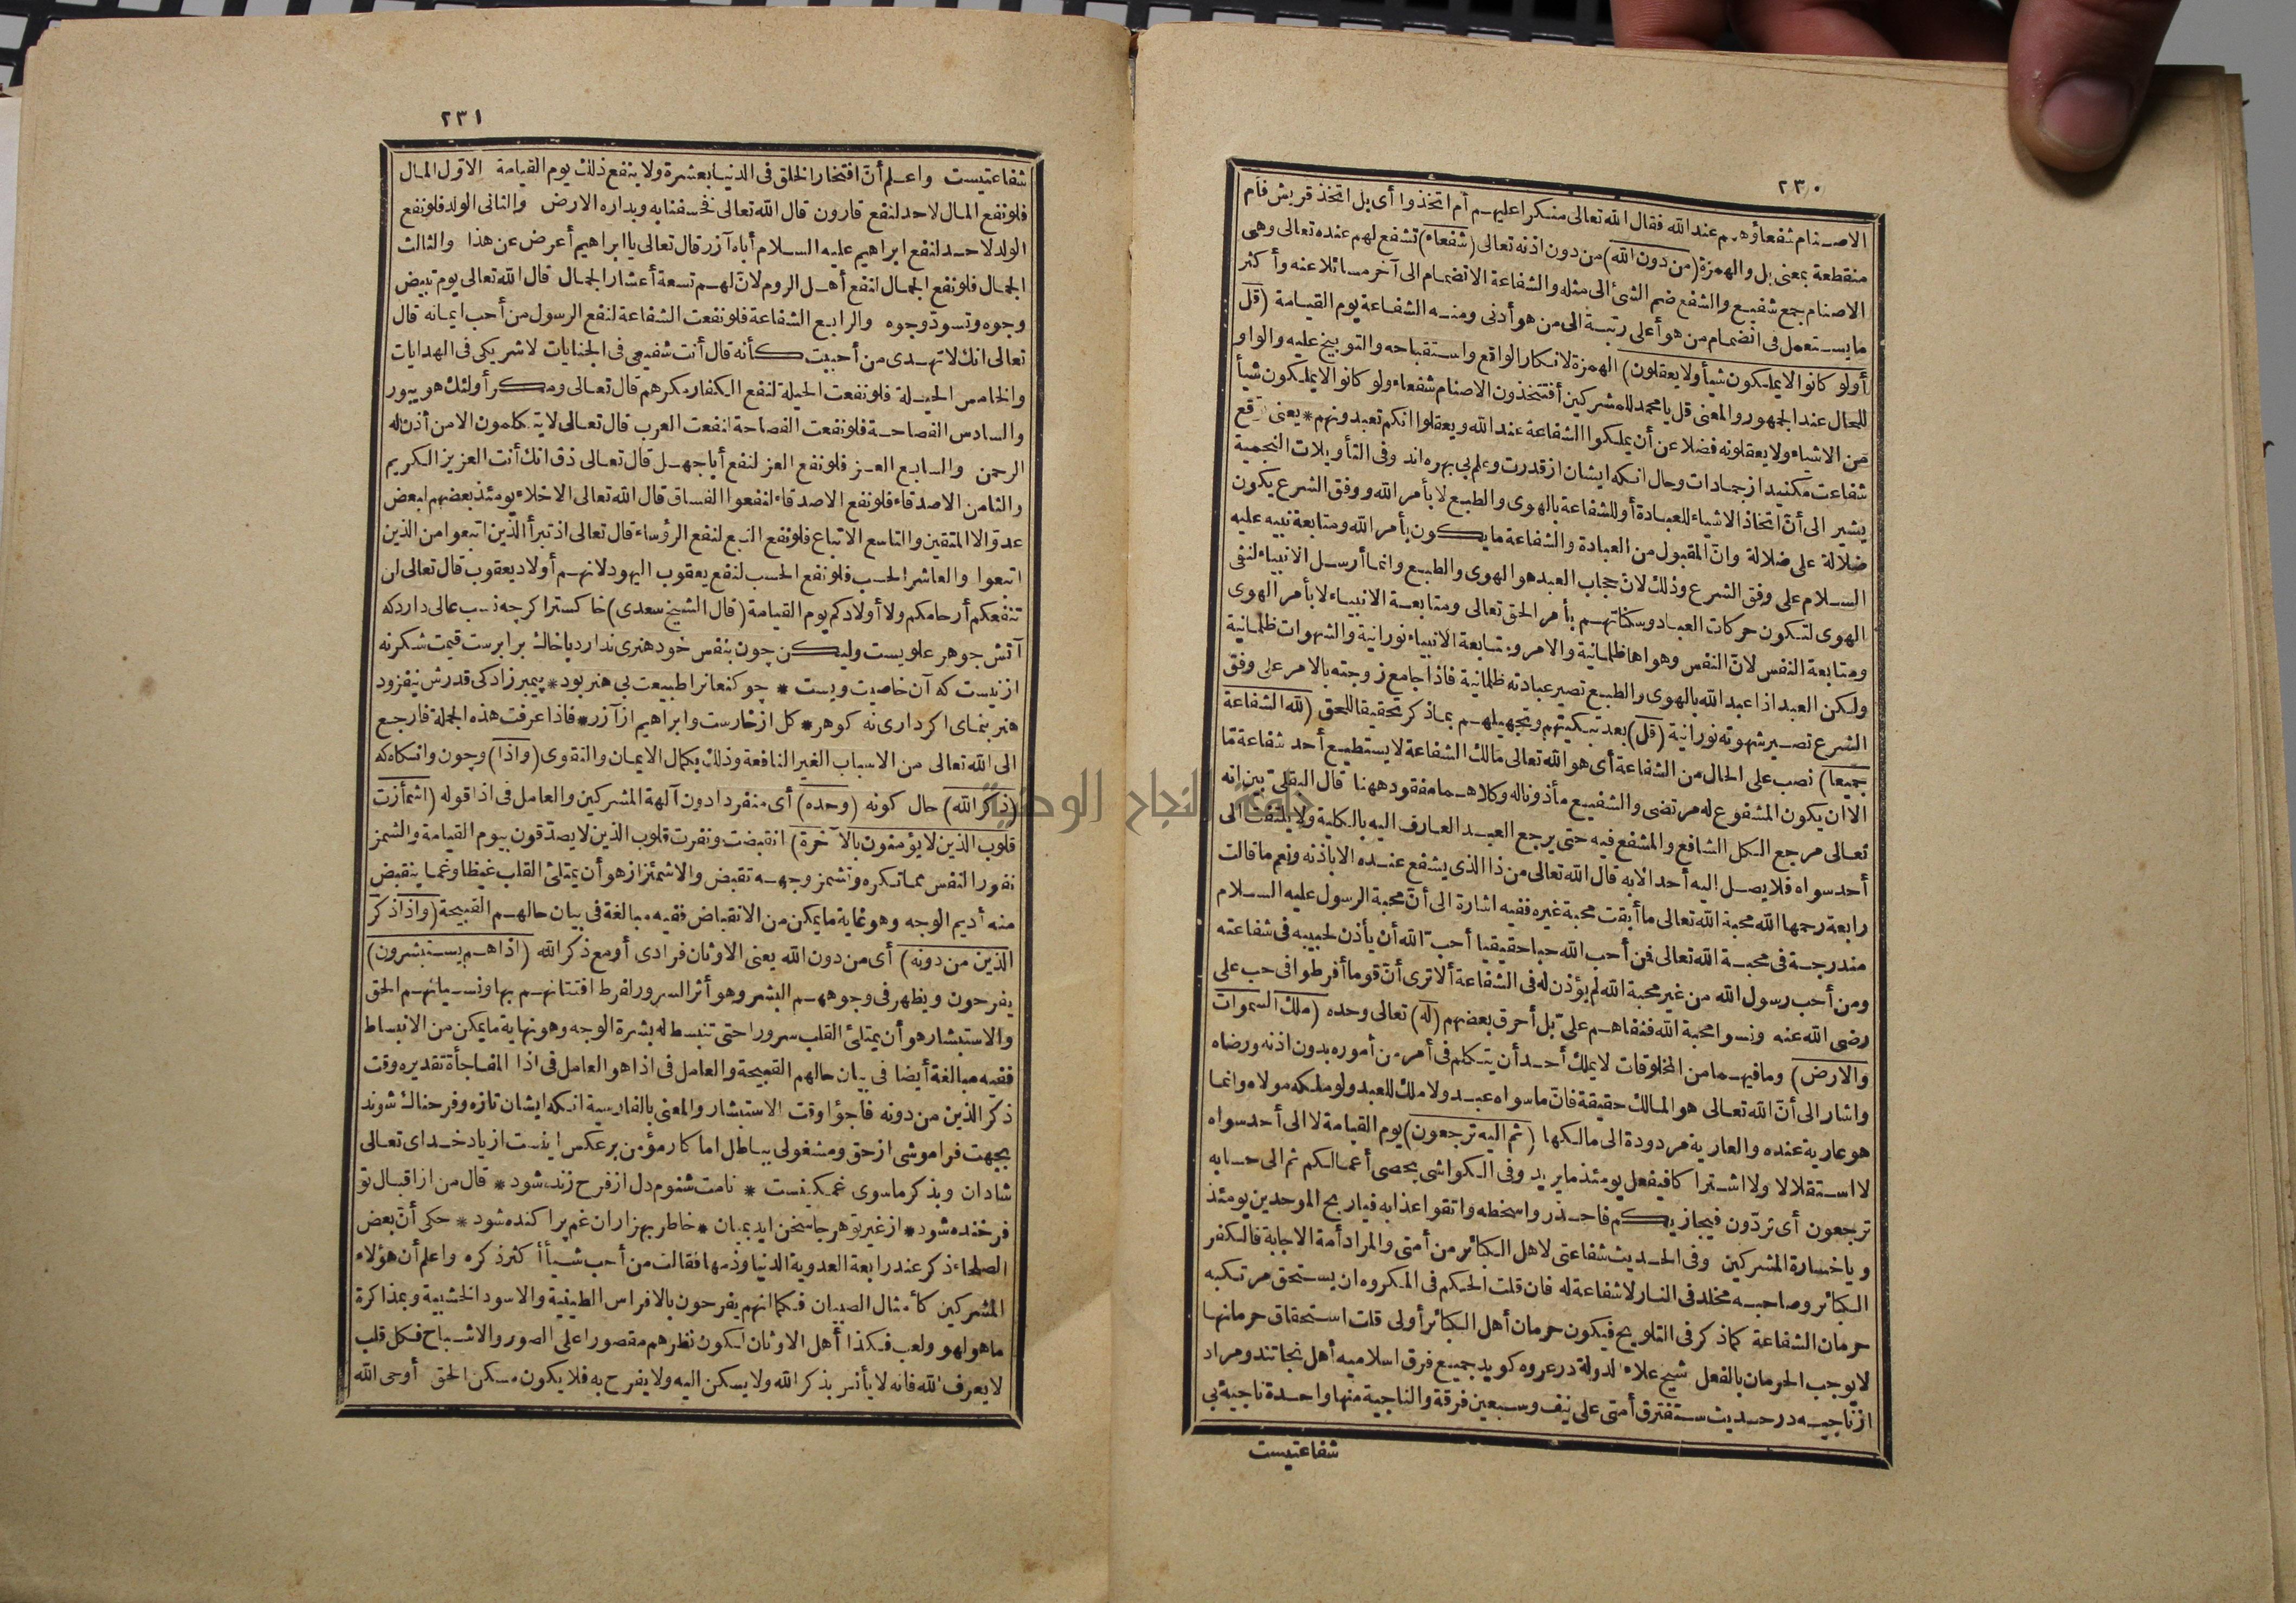 ٢٣٠
الاصنام شفعاؤهم عند الله فقال الله تعالى منكرا عليهم أم اتخذوا أى بل اتخذ قريش فأم
منقطعة بمعنى بل والهمزة (من دون الله) من دون اذنه تعالى (شفعاء) تشفع لهم عنده تعالى وهى
الاصنام جمع شفيع والشفع ضم الشئ الى مثله والشفاعة الانضمام الى آخر مسائلا عنه وأكثر
ما يستعمل فى انضمام من هو أعلى رتبة الى من هو أدنى ومنه الشفاعة يوم القيامة (قل
أولو كانوا لا يملكون شيأ ولا يعقلون) الهمزة لانكار الواقع واستقباحه والتوبيخ عليه والواو
للحال عند الجمهور والمعنى قل يا محمد للمشركين أفتتخذون الاصنام شفعاء ولو كانوا لا يملكون شيأ
من الاشياء ولا يعقلونه فضلا عن أن يملكوا الشفاعة عند الله ويعقلوا انكم تعبدونهم * يعنى توقع
شفاعت مكنيد از جمادات وحال انكه ايشان از قدرت وعلم بى بهره اند وفى التأويلات النجمية
يشير الى أن اتخاذ الاشياء للعبادة أو للشفاعة بالهوى والطبع لا بأمر الله ووفق الشرع يكون
ضلالة على ضلالة وان المقبول من العبادة والشفاعة ما يكون بأمر الله ومتابعة نبيه عليه
السلام على وفق الشرع وذلك لان حجاب العبد هو الهوى والطبع وانما أرسل الانبياء لنفى
الهوى لتكون حركات العباد وسكناتهم بأمر الحق تعالى ومتابعة الانبياء لا بأمر الهوى
ومتابعة النفس لان النفس وهواها ظلمانية والامر ومتابعة الانبياء نورانية والشهوات ظلمانية
ولكن العبد اذا عبد الله بالهوى والطبع تصير عبادته ظلمانية فاذا جامع زوجته بالامر على وفق
الشرع تصير شهوته نورانية (قل) بعد تبكيتهم وتجهيلهم بما ذكر تحقيقا للحق (لله الشفاعة
جميعا) نصب على الحال من الشفاعة أى هو الله تعالى مالك الشفاعة لا يستطيع أحد شفاعة مّا
الا ان يكون المشفوع له مرتضى والشفيع مأذونا له وكلاهما مفقود ههنا قال البقلى بين انه
تعالى مرجع الكل الشافع والمشفع فيه حتى يرجع العبد العارف اليه بالكلية ولا يلتفت الى
أحد سواه فلا يصل اليه أحد الا به قال الله تعالى من ذا الذى يشفع عنده الا باذنه ونعم ما قالت
رابعة رحمها الله محبة الله تعالى ما أبقت محبة غيره ففيه اشارة الى أن محبة الرسول عليه السلام
مندرجة فى محبة الله تعالى فمن أحب الله حبا حقيقيا أحب الله أن يأذن لحبيبه فى شفاعته
ومن أحب رسول الله من غير محبة الله لم يؤذن له فى الشفاعة ألا ترى أن قوما أفرطوا فى حب على
رضى الله عنه ونسوا محبة الله فنفاهم علىّ بل أحرق بعضهم (له) تعالى وحده (ملك السموات
والارض) وما فيهما من المخلوقات لا يملك أحد أن يتكلم فى أمر من أموره بدون اذنه ورضاه
واشار الى أن الله تعالى هو المالك حقيقة فان ما سواه عبد ولا ملك للعبد ولو ملكه مولاه وانما
هو عارية عنده والعارية مردودة الى مالكها (ثم اليه ترجعون) يوم القيامة لا الى أحد سواه
لا استقلالا ولا اشتراكا فيفعل يومئذ ما يريد وفى الكواشى يحصى أعمالكم ثم الى حسابه
ترجعون أى تردّون فيجازيكم فاحذروا سخطه واتقوا عذابه فيا ربح الموحدين يومئذ
ويا خسارة المشركين وفى الحديث شفاعتى لاهل الكبائر من أمتى والمراد أمة الاجابة فالكفر
الكبائر وصاحبه مخلد فى النار لا شفاعة له فان قلت الحكم فى المكروه ان يستحق مرتكبه
حرمان الشفاعة كما ذكر فى التلويح فيكون حرمان أهل الكبائر أولى قلت استحقاق حرمانها
لا يوجب الحرمان بالفعل شيخ علاء الدولة در عروه كويد جميع فرق اسلاميه أهل نجاتند ومراد
از ناجيه در حديث ستفترق أمتى على نيف وسبعين فرقة والناجية منها واحدة ناجية بى
شفاعتيست
٢٣١
شفاعتيست واعلم أن افتخار الخلق فى الدنيا بعشرة ولا ينفع ذلك يوم القيامة الاوّل المال
فلو نفع المال لاحد لنفع قارون قال الله تعالى فخسفنا به وبداره الارض والثانى الولد فلو نفع
الولد لاحد لنفع ابراهيم عليه السلام أباه آزر قال تعالى يا ابراهيم أعرض عن هذا والثالث
الجمال فلو نفع الجمال لنفع أهل الروم لان لهم تسعة أعشار الجمال قال الله تعالى يوم تبيض
وجوه وتسودّ وجوه والرابع الشفاعة فلو نفعت الشفاعة لنفع الرسول من أحب ايمانه قال
تعالى انك لا تهدى من أحببت كأنه قال أنت شفيعى فى الجنايات لا شريكى فى الهدايات
والخامس الحيلة فلو نفعت الحيلة لنفع الكفار مكرهم قال تعالى ومكر أولئك هو يبور
والسادس الفصاحة فلو نفعت الفصاحة لنفعت العرب قال تعالى لا يتكلمون الا من أذن له
الرحمن والسابع العز فلو نفع العز لنفع أبا جهل قال تعالى ذق انك أنت العزيز الكريم
والثامن الاصدقاء فلو نفع الاصدقاء لنفعوا الفساق قال الله تعالى الاخلاء يومئذ بعضهم لبعض
عدوّ الا المتقين والتاسع الاتباع فلو نفع التبع لنفع الرؤساء قال تعالى اذ تبرأ الذين اتبعوا من الذين
اتبعوا والعاشر الحسب فلو نفع الحسب لنفع يعقوب اليهود لانهم أولاد يعقوب قال تعالى لن
تنفعكم أرحامكم ولا أولادكم يوم القيامة (قال الشيخ سعدى) خاكستر اكرچه نسب عالى دارد كه
آتش جوهر علويست وليكن چون بنفس خود هنرى ندارد با خاك برابرست قيمت شكر نه
از نيست كه آن خاصيت ويست * چو كنعانرا طبيعت بى هنر بود * پيمبر زادكى قدرش نيفزود
هنر بنماى اكر دارى نه كوهر * كل از خارست وابراهيم از آزر * فاذا عرفت هذه الجملة فارجع
الى الله تعالى من الاسباب الغير النافعة وذلك بكمال الايمان والتقوى (واذا) وچون وانكاه كه
(ذكر الله) حال كونه (وحده) أى منفردا دون آلهة المشركين والعامل فى اذا قوله (اشمأزت
قلوب الذين لا يؤمنون بالآخرة) انقبضت ونفرت قلوب الذين لا يصدّقون بيوم القيامة والشمز
نفور النفس مما تكره وتشمز وجهه تقبض والاشمئزاز هو أن يمتلئ القلب غيظا وغما ينقبض
منه أديم الوجه وهو غاية ما يمكن من الانقباض ففيه مبالغة فى بيان حالهم القبيحة (واذا ذكر
الذين من دونه) أى من دون الله يعنى الاوثان فرادى أو مع ذكر الله (اذا هم يستبشرون)
يفرحون ويظهر فى وجوههم البشر وهو أثر السرور لفرط افتتانهم بها ونسيانهم الحق
والاستبشار هو أن يمتلئ القلب سرورا حتى تنبسط له بشرة الوجه وهو نهاية ما يمكن من الانبساط
ففيه مبالغة أيضا فى بيان حالهم القبيحة والعامل فى اذا هو العامل فى اذا المفاجأة تقديره وقت
ذكر الذين من دونه فاجؤا وقت الاستبشار والمعنى بالفارسية انكه ايشان تازه وفرحناك شوند
بجهت فراموشى از حق ومشغولى بباطل اما كار مؤمن بر عكس اينست از ياد خداى تعالى
شادان وبذكر ماسوى غمكينست * نامت شنوم دل از فرح زنده شود * قال من از اقبال تو
فرخنده شود * از غير تو هر جا سخن ايد بميان * خاطر بهزاران غم پراكنده شود * حكى أن بعض
الصلحاء ذكر عند رابعة العدوية الدنيا وذمها فقالت من أحب شيأ أكثر ذكره واعلم أن هؤلاء
المشركين كأمثال الصبيان فكما انهم يفرحون بالافراس الطينية والاسود الخشبية وبمذاكرة
ما هو لهو ولعب فكذا أهل الاوثان لكون نظرهم مقصورا على الصور والاشباح فكل قلب
لا يعرف الله فانه لا يأنس بذكر الله ولا يسكن اليه ولا يفرح به فلا يكون مسكن الحق أوحى الله